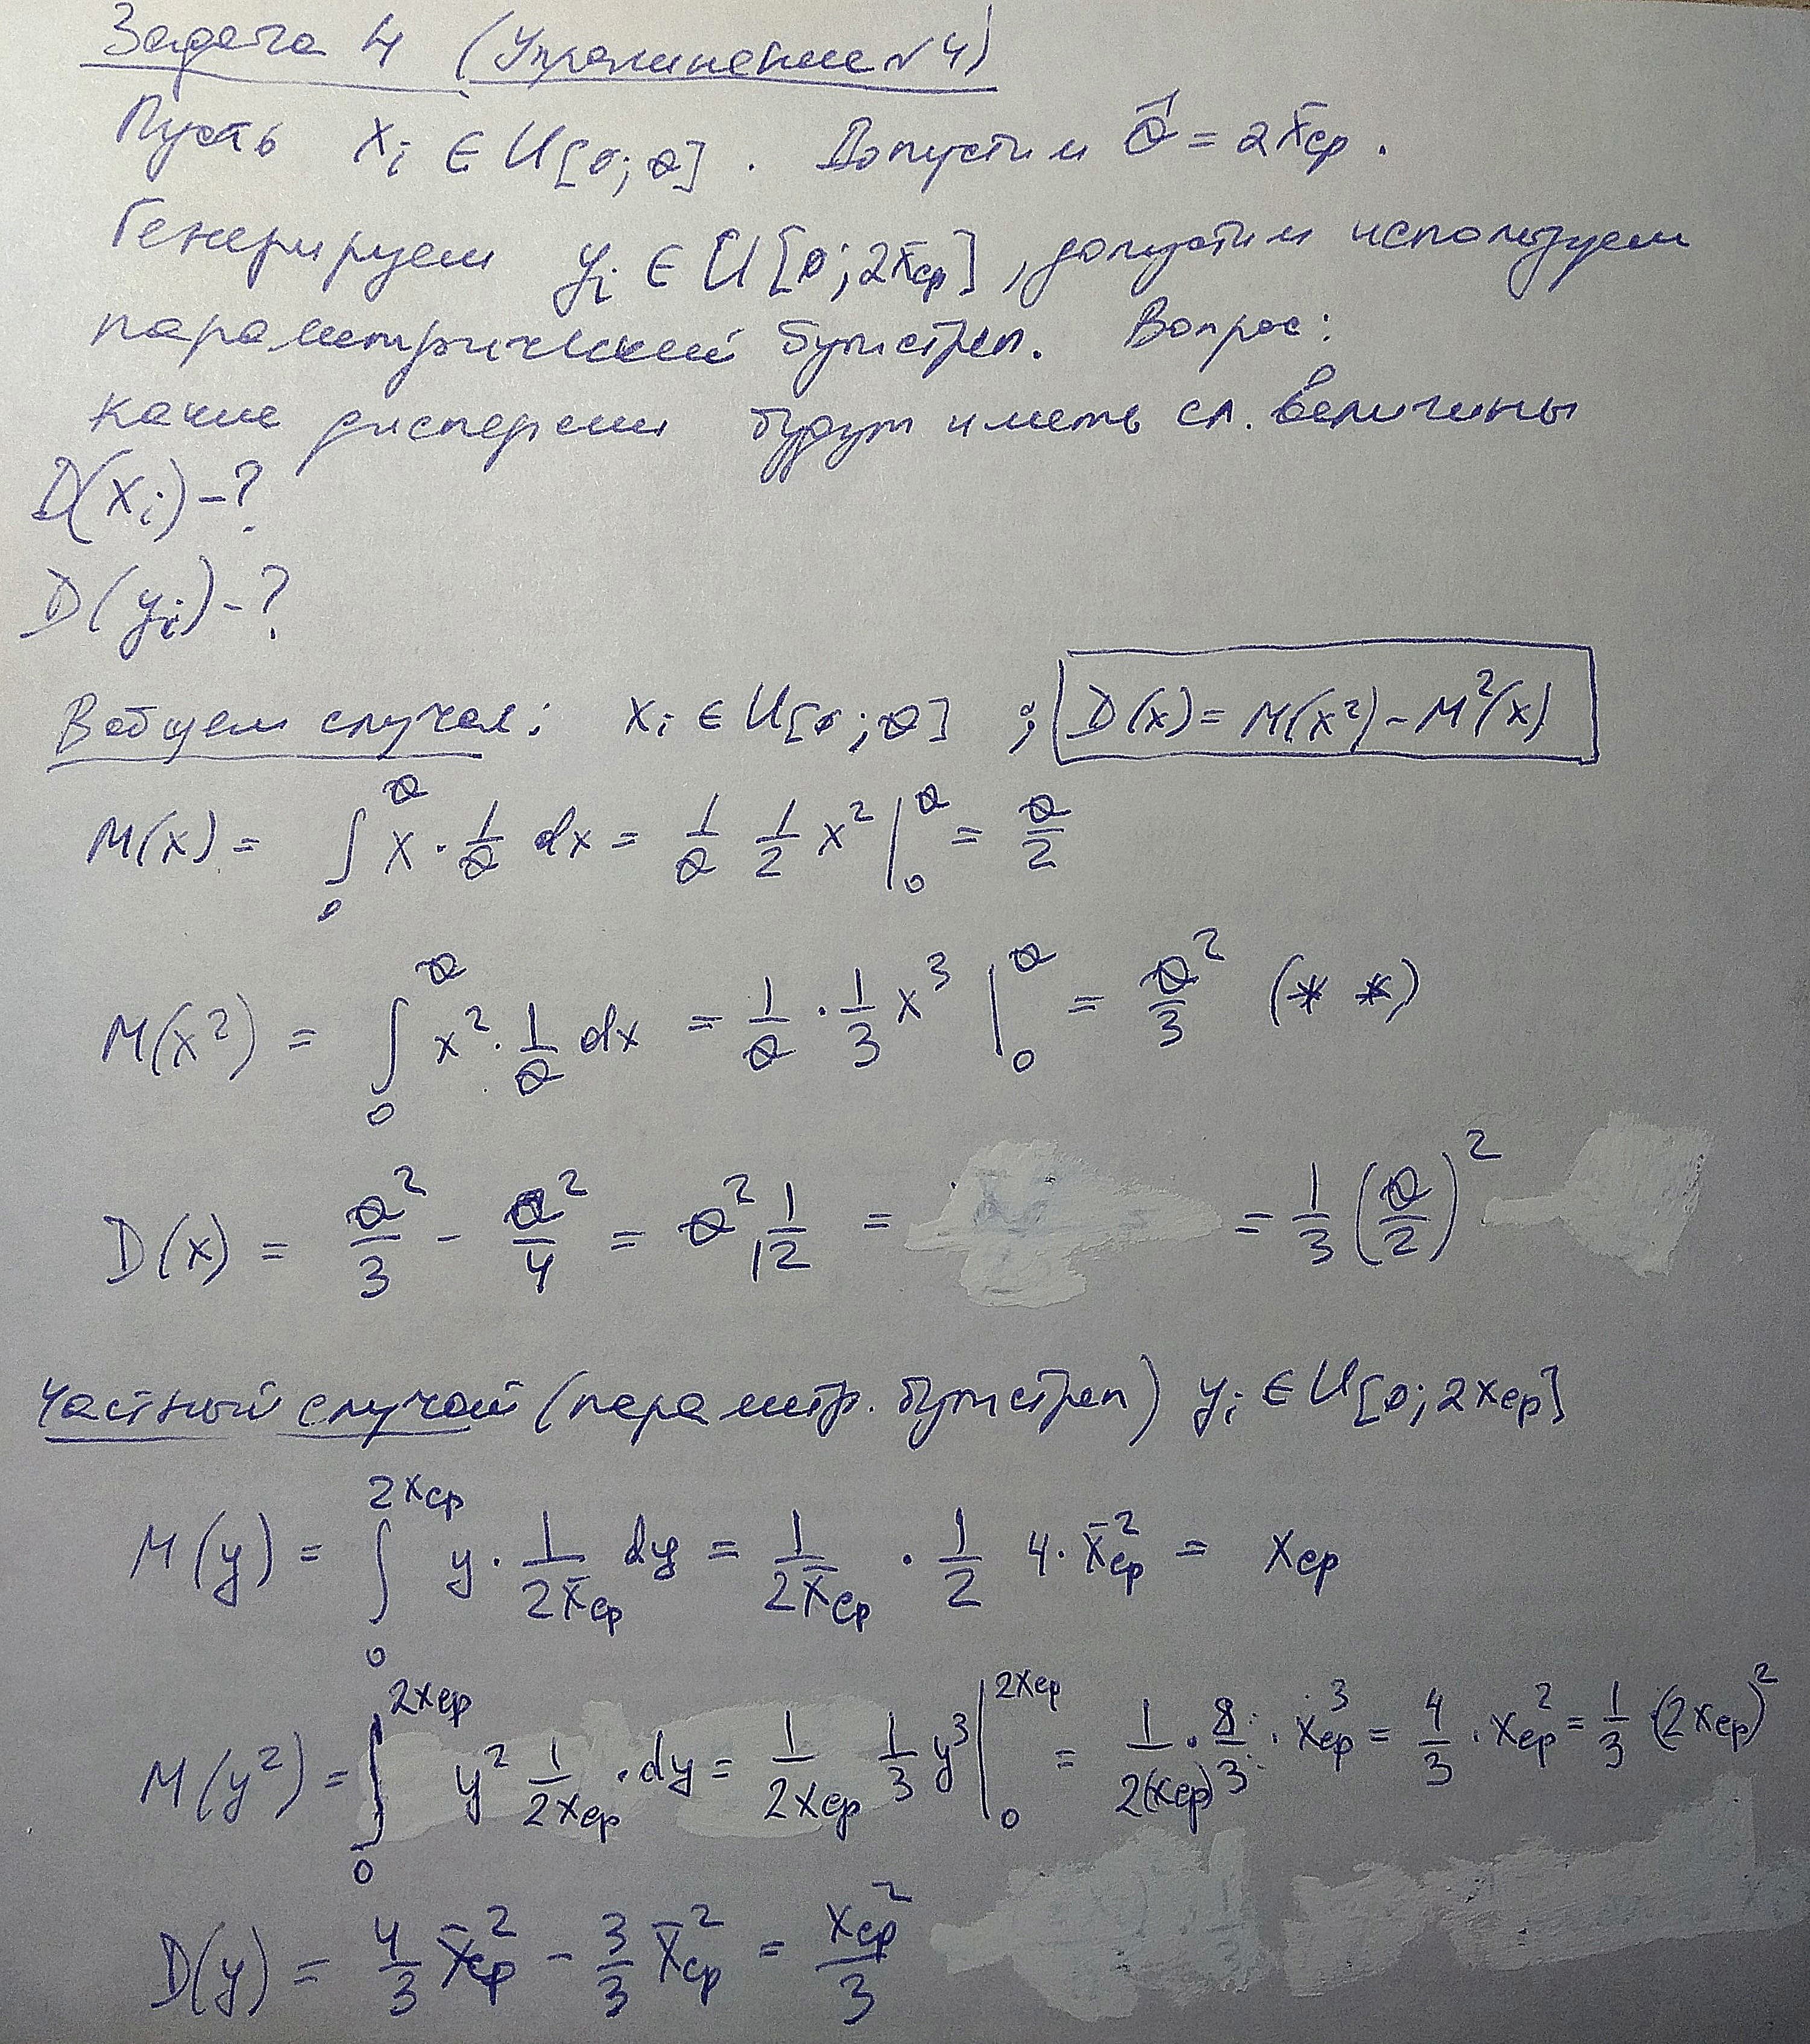 Задача 4 (Упражнение №4)
Пусть xᵢ ∈ U[0; θ]. Допустим θ̂ = 2x̄ср.
Генерируем yᵢ ∈ U[0; 2x̄ср], допустим используем
параметрический бутстреп. Вопрос:
какие дисперсии будут иметь сл. величины
D(xᵢ) - ?
D(yᵢ) - ?
В общем случае: xᵢ ∈ U[0; θ] ; D(x) = M(x²) - M²(x)
M(x) = ∫₀^θ x · 1/θ dx = 1/θ 1/2 x² |₀^θ = θ/2
M(x²) = ∫₀^θ x² · 1/θ dx = 1/θ · 1/3 x³ |₀^θ = θ²/3 (* *)
D(x) = θ²/3 - θ²/4 = θ² 1/12 = = 1/3 (θ/2)²
Частный случай (параметр. бутстреп) yᵢ ∈ U[0; 2xср]
M(y) = ∫₀^2xср y · 1/2x̄ср dy = 1/2x̄ср · 1/2 4 · x̄ср² = xср
M(y²) = ∫₀^2xср y² 1/2xср · dy = 1/2xср 1/3 y³ |₀^2xср = 1/2(xср) · 8/3 · xср³ = 4/3 · xср² = 1/3 (2xср)²
D(y) = 4/3 x̄ср² - 3/3 x̄ср² = xср²/3